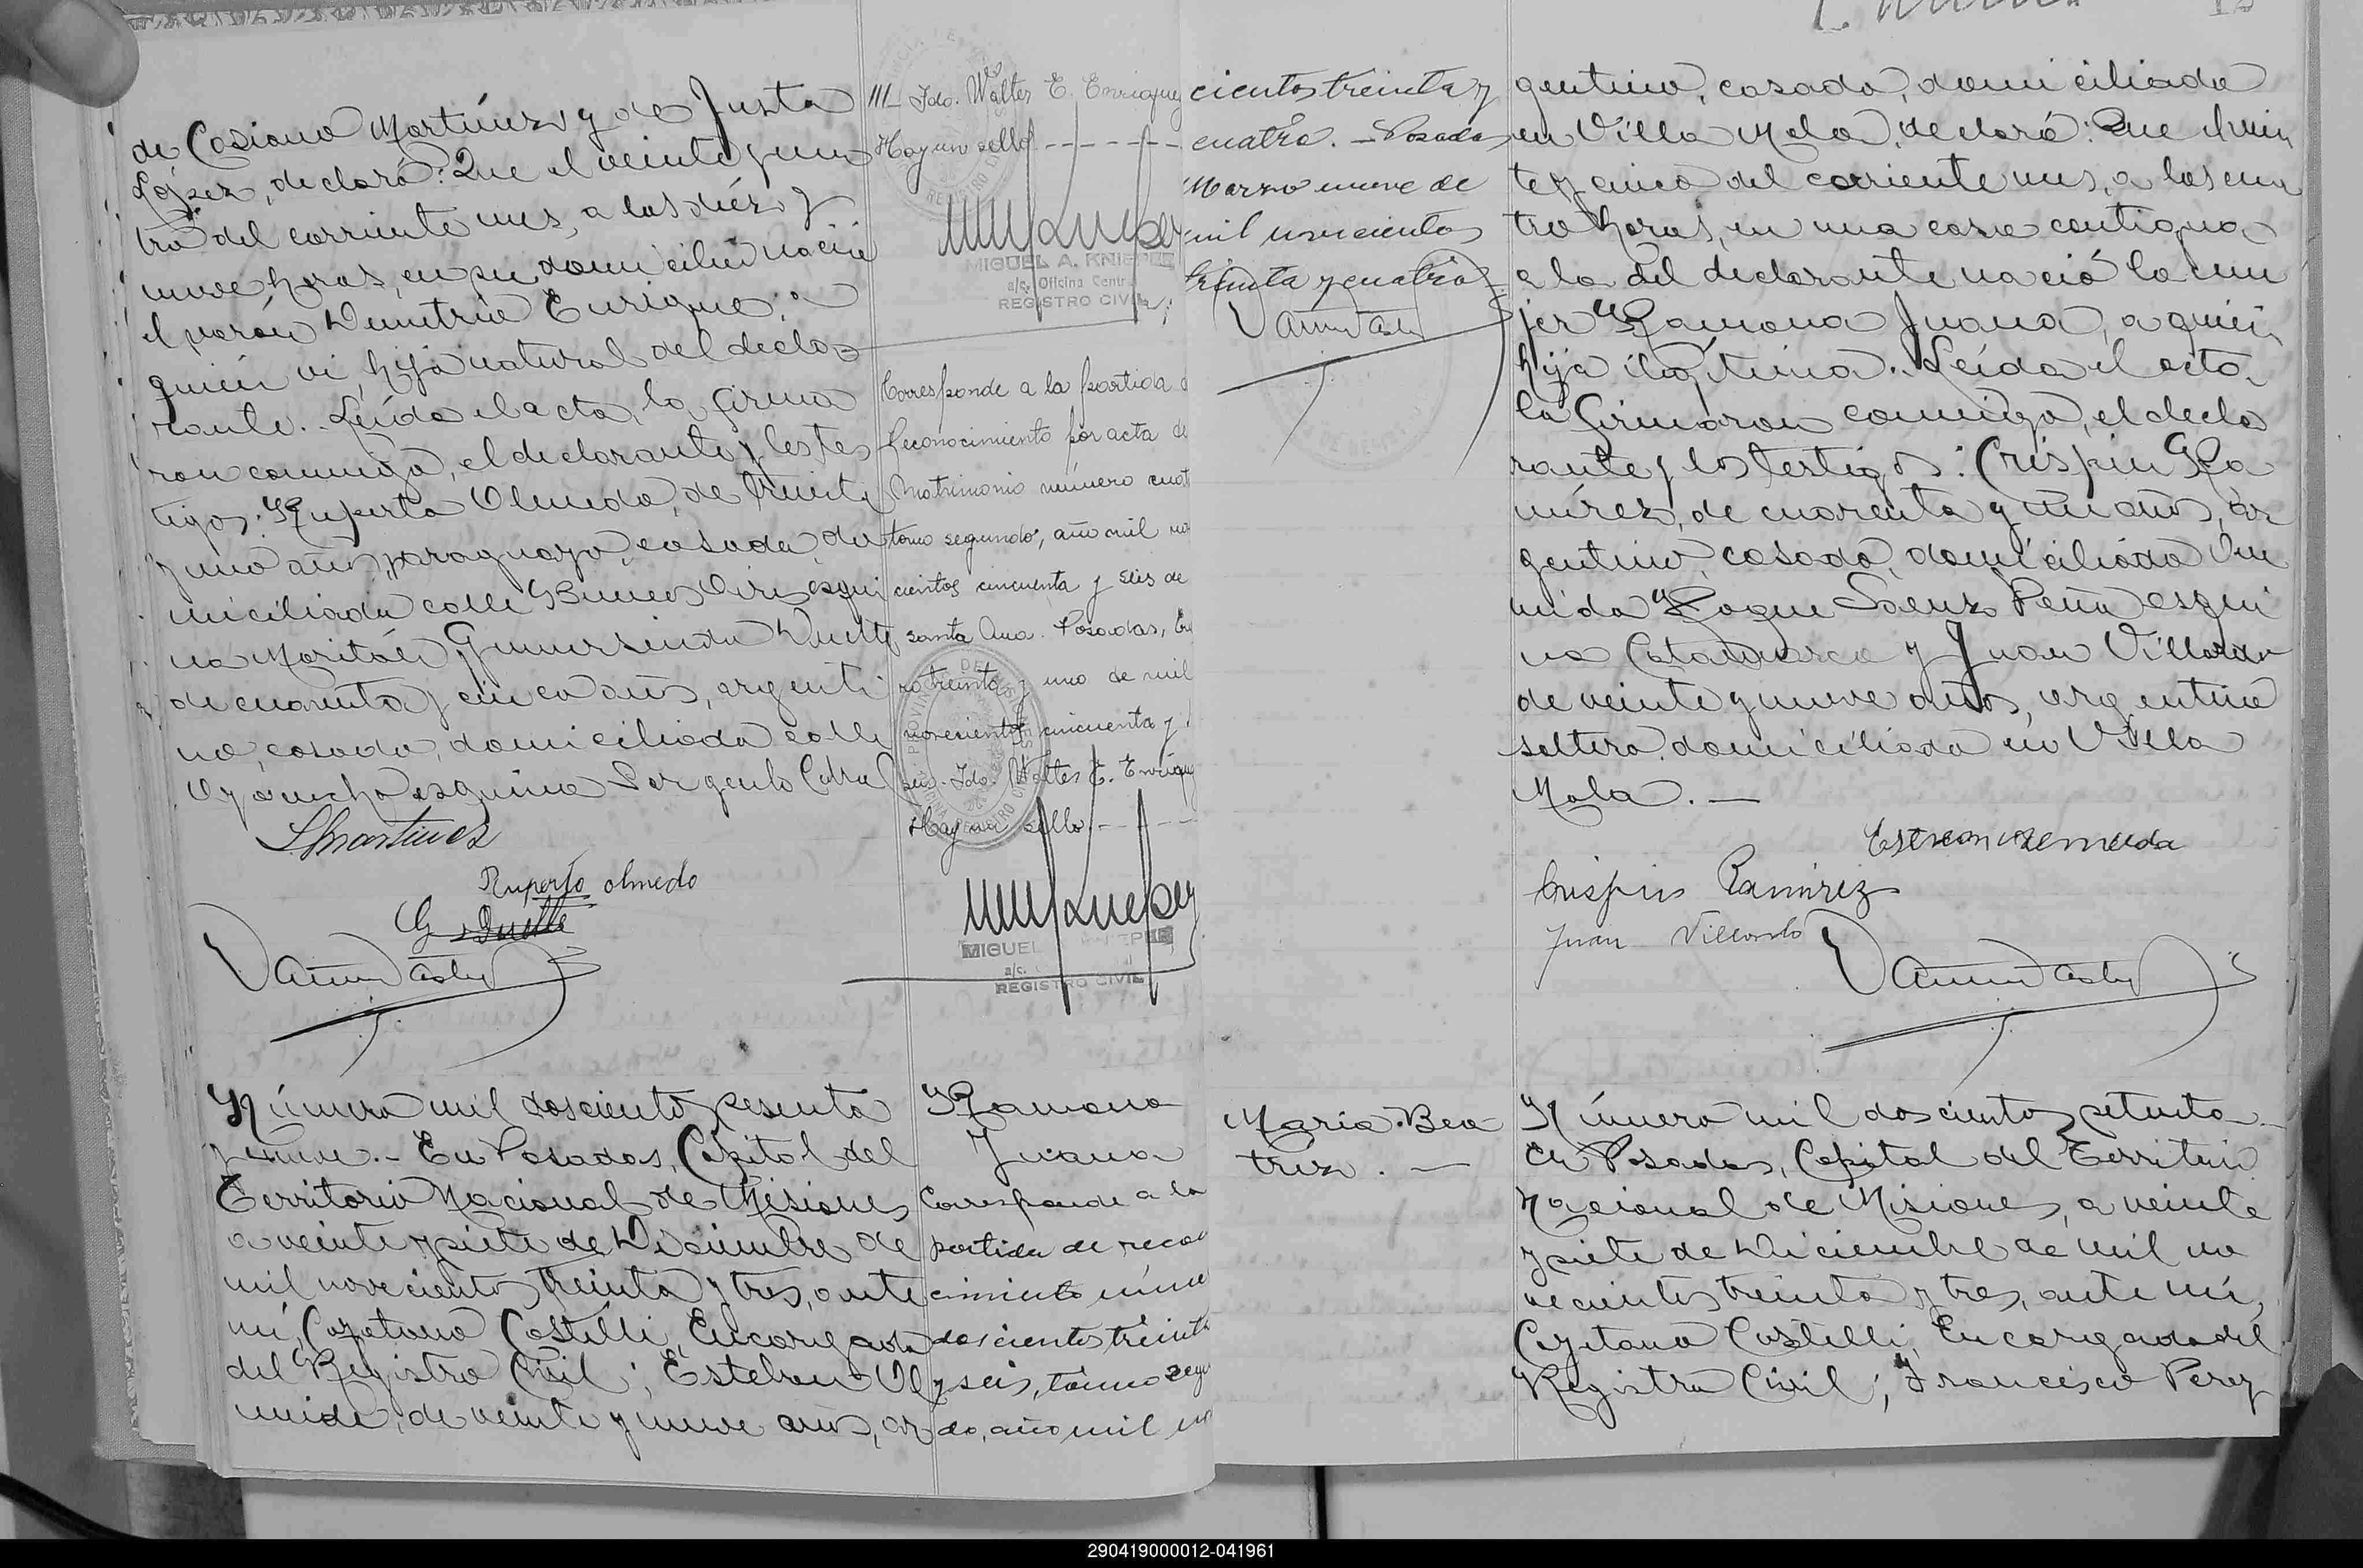 de Casiano Martínez y de Justa
López, declaró: Que el veinte y cua
tro del corriente mes, a las diéz y
nueve horas, en su domicilio nació
el varón Demetrio Enrique, a
quién vi, hijo natural del decla
rante. Leída el acta, la firma
ron conmigo, el declarante y los tes
tigos: Ruperto Olmedo, de treinta
y uno años, paraguayo, casado, do
miciliado calle Buenos Aires esqui
na Gumersindo Duette
de cuarenta y cinco años, argenti
no, casado, domiciliado calle
Ayacucho esquina Sargento Cabral
Martinez
Ruperto olmedo
G. Duette
Número mil doscientos sesenta
y nueve.- En Posadas, Capital del
Territorio Nacional de Misiones,
a veinte y siete de Diciembre de
mil novecientos treinta y tres, ante
mí, Cayetano Castelli, Encargado
del Registro Civil; Esteban Al
meida, de veinte y nueve años, ar
Fdo. Walter E. Enrique
Hay un sello
MIGUEL A. KNIEPER
a/c. Oficina Central
REGISTRO CIVIL
Corresponde a la partida d
Reconocimiento por acta de
Matrimonio número cuat
tomo segundo, año mil no
cientos cincuenta y seis de
Santa Ana. Posadas, En
ro treinta y uno de mil
novecientos cincuenta y
Fdo. Walter E. Enriqu
Hay un sello
MIGUEL
a/c.
REGISTRO CIVIL
Ramona
Juana
Corresponde a la
partida de recono
cimiento núme
doscientos treinta
y seis, tomo segu
do, año mil no
cientos treinta y
cuatro. - Posadas
Marzo nueve de
mil novecientos
treinta y cuatro
gentino, casado, domiciliado
en Villa Mola, declaró: Que el vein
te y cinco del corriente mes, a las cua
tro horas, en una casa contigua
a la del declarante nació la mu
jer Ramona Juana, a quién
hija ilegítima. Leída el acta,
la firmaron conmigo, el decla
rante y los testigos: Crispin Ra
mírez, de cuarenta y un años, ar
gentino, casado, domiciliado Ave
nida Roque Saenz Peña esqui
na Catamarca y Juan Villordo
de veinte y nueve años, argentino
soltero domiciliado en Villa
Mola. —
Crispin Ramirez
Juan Villordo
Maria Bea
triz. —
Número mil doscientos setenta
En Posadas, Capital del Territorio
Nacional de Misiones, a veinte
y siete de Diciembre de mil no
vecientos treinta y tres, ante mí,
Cayetano Castelli, Encargado del
Registro Civil; Francisco Perez
290419000012-041961